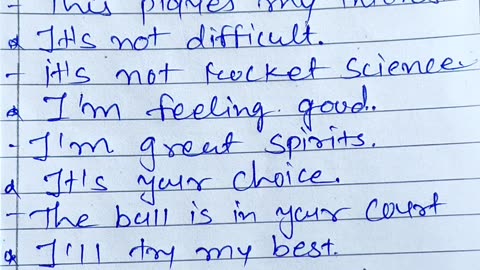 - This piques my
It's not difficult.
- it's not rocket science.
I'm feeling good.
- I'm great spirits.
It's your choice.
- The ball is in your court
I'll try my best.